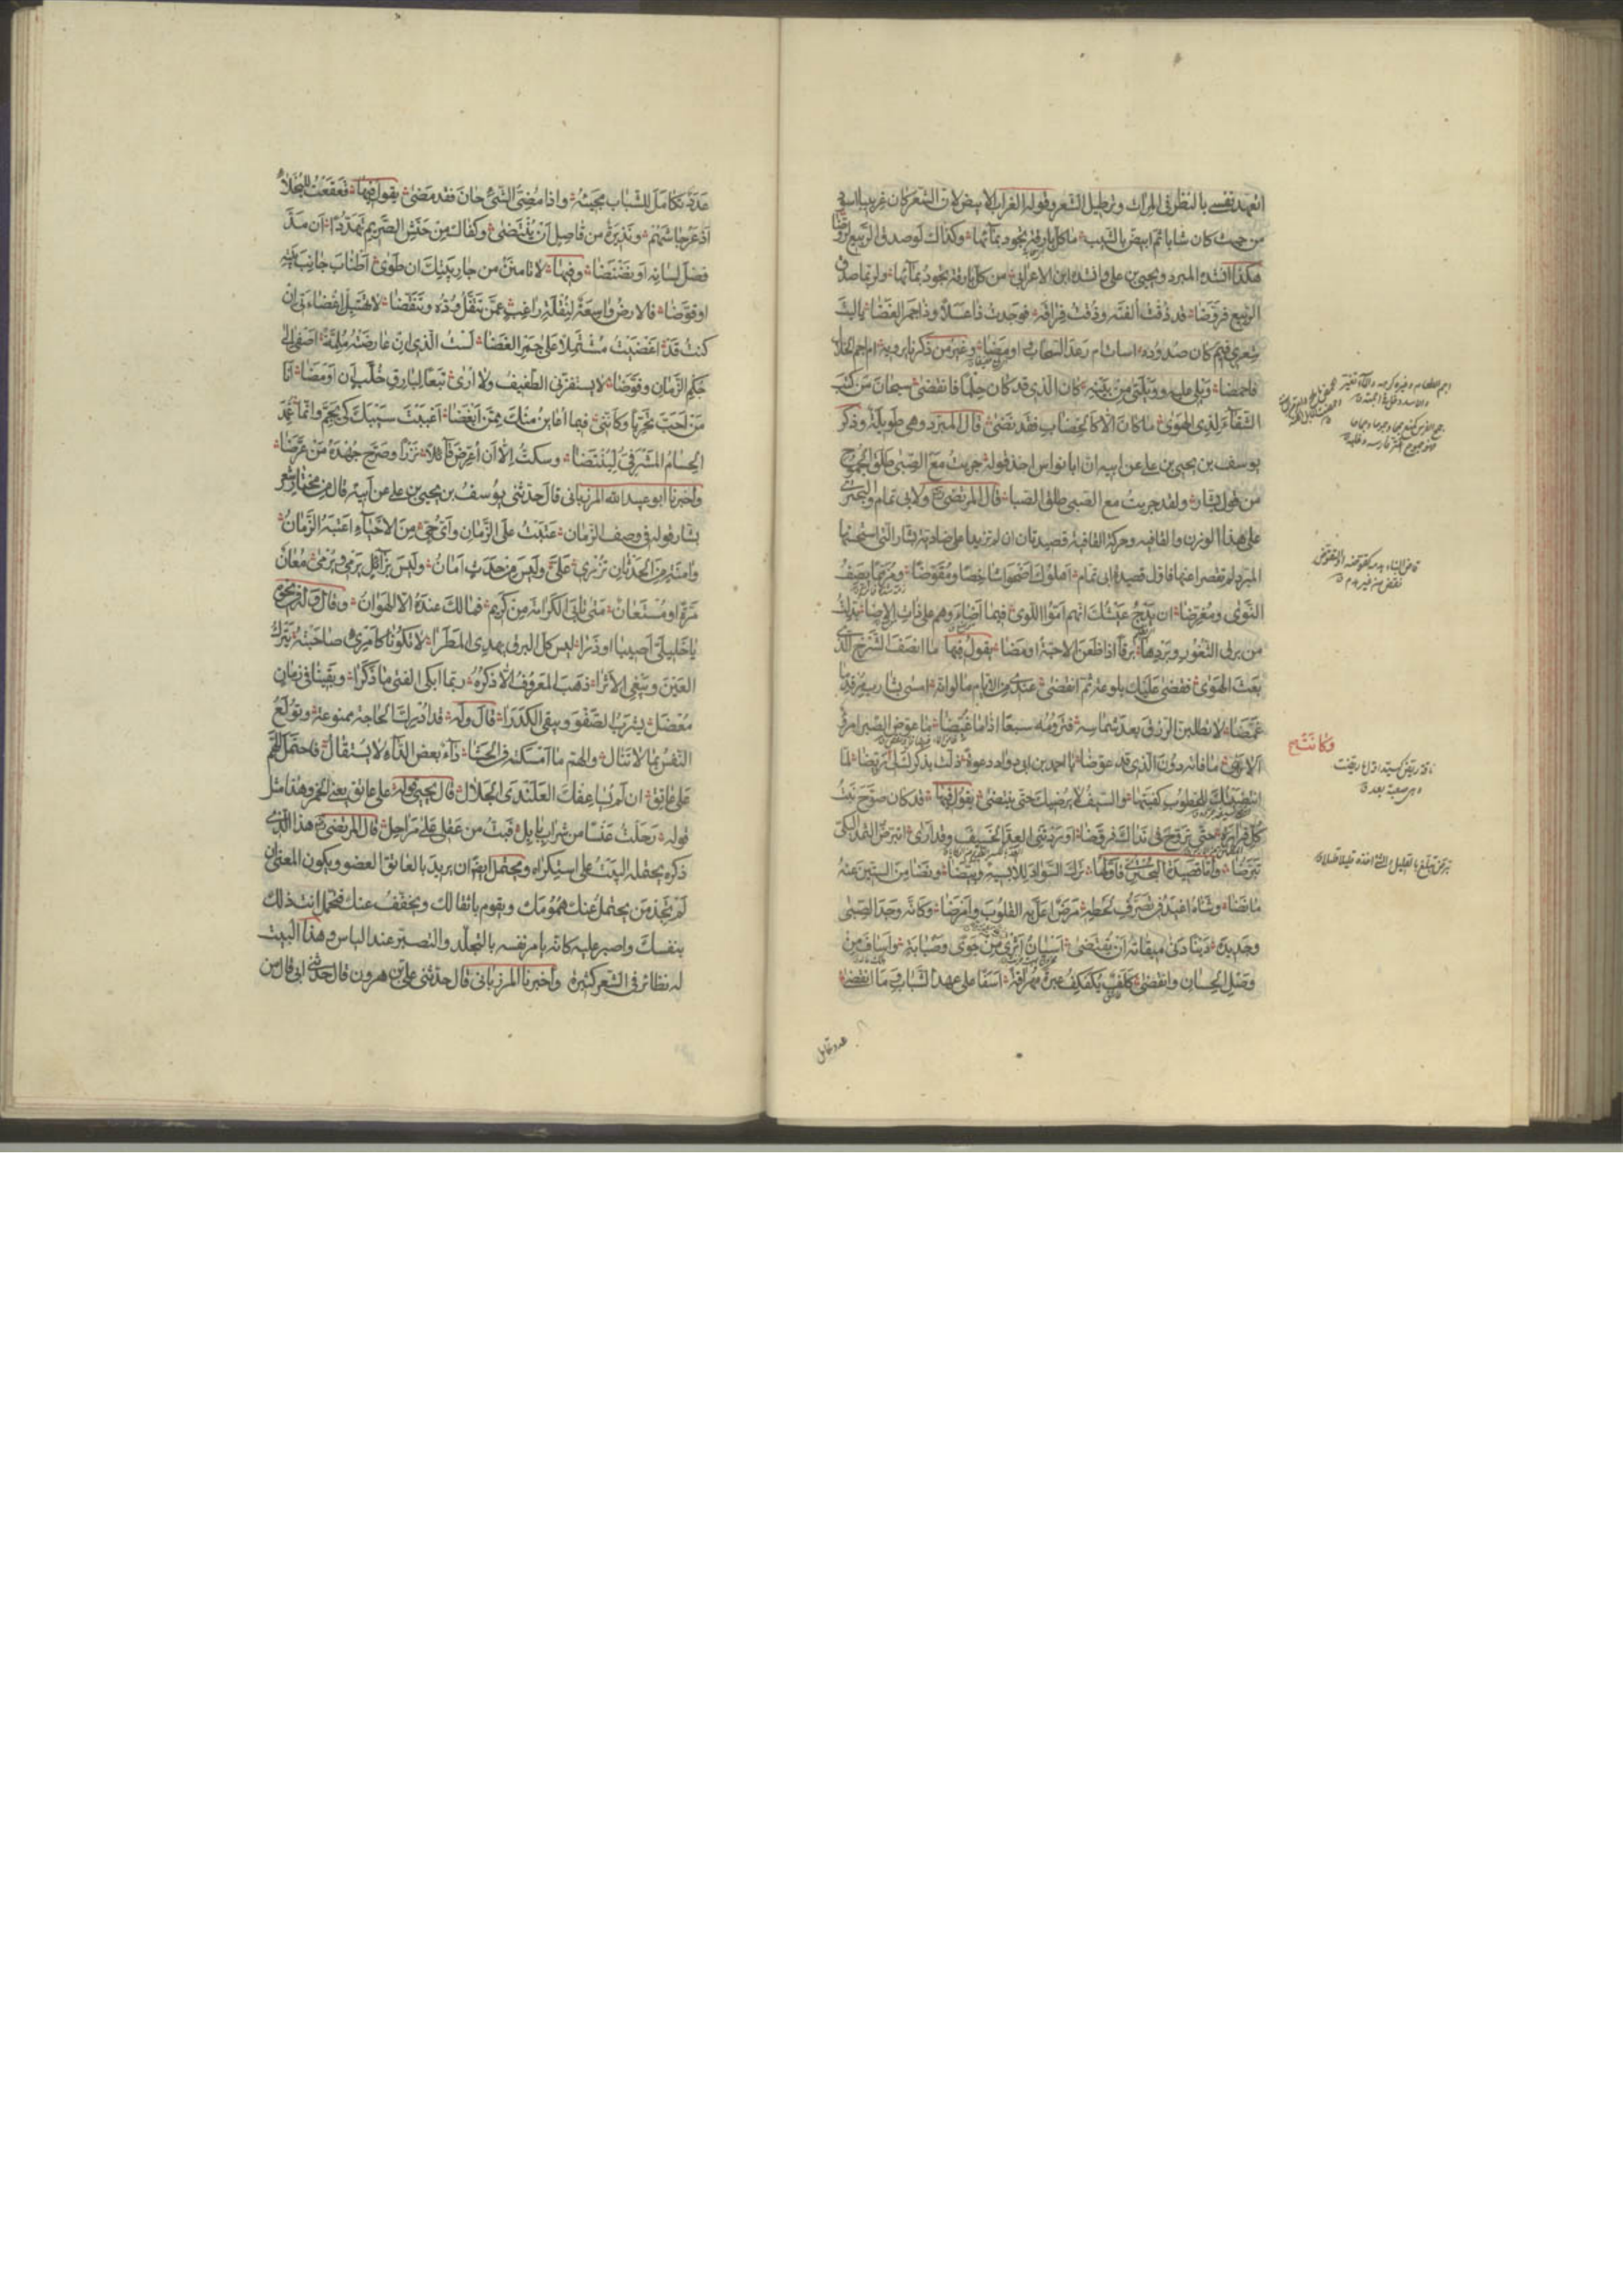 اتعهد نفسي بالنظر في المرآة وترطيل الشعر وقوله الغراب الابيض لان الشعر كان غربيبا اسود
من حيث كان شابا ثم ابيض بالشيب ما كل بارقة تجود بمائها وكذاك لو صدق الربيع لروضا
هكذا انشده المبرد ويحيى بن علي وانشده ابن الاعرابي من كل بارقة تجود بمائها ولربما صدق
الربيع فروضا قد ذقت الفته وذقت فراقه فوجدت ذا عسلا وذا جمر الغضا يا ليت
شعري فيم كان صدوده ااسأت ام رعد السحاب اومضا وغير من ذكرنا يرويه ام اجم الخلال
فاحمضا ويلي عليه وويلتي من بينه كان الذي قد كان حلما فانقضى سبحان من كتب
الشقاء لذي الهوى ما كان الا كالخضاب فقد نضى قال المبرد وهي طويلة وذكر
يوسف بن يحيى بن علي عن ابيه ان ابا نواس اخذ قوله جريت مع الصبى طلق الجموح
من قول بشار ولقد جريت مع الصبى طلق الصبا قال المرتضى ولابي تمام والبحتري
على هذا الوزن والقافية وحركة القافية قصيدتان ان لم تزيدا على ضادية بشار التي استحسنها
المبرد لم تقصرا عنها فاول قصيدة ابي تمام اهلوك اضحوا شاخصا ومقوضا ومزمما يصف
النوى ومغرضا ان يدج عيشك انهم اموا اللوى فيما اضاء وهم على ذات الاضا بدلت
من برق الثغور وبردها برقا اذا ظعن الاحبة اومضا يقول فيها ما انصف الشرخ الذي
بعث الهوى فقضى عليك بلوعة ثم انقضى عندي من الايام ما لو انه اسى بشارب مرقد ما
غمضا لا تطلبن الرزق بعد شماسه فترومه سبعا اذا ما غيضا ما عوض الصبر امرؤ
الا رأى ما فاته دون الذي قد عوضا يا احمد بن ابي دواد دعوة ذلت بذكرك لي ريضا لما
انتضيتك للخطوب كفيتها والسيف لا يرضيك حتى ينتضى يقول فيها قد كان صوح نبت
كل قرارة حتى تروح في نداك فروضا اوردتني العد الخسيف وقد ارى اتبرض الثمد البكي
تبرضا واما قصيدة البحتري فاولها ترك السواد للابسيه وبيضا ونضا من الستين عنه
ما نضا وشآه اغيد في تصرف لحظه مرض اعل به القلوب وامرضا وكانه وجد الصبى
وجديده دينا دنى ميقاته ان يقتضى اسيان اثرى من جوى وصبابة واساف من
وصل الحسان وانفضا كلف يكفكف عبرة مهراقة اسفا على عهد الشباب وما انقضى
وكانت
عدد تكامل
عدد تكامل للشباب مجيئه واذا مضى الشيء حان فقد مضى يقول فيها قعقعت للبخلاء
اذعر جاشهم ونذيرة من قاصل ان ينتضى وكفاك من حنش الصريم تهددا ان مد
فضل لسانه او نضنضا وفيها لا تامنن من جار بيتك ان طوى اطناب جانب بيته
او قوضا فالارض واسعة لنقلة راغب عمن تنقل وده وتنقضا لا تهتبل اغضاءتي ان
كنت قد اغضيت مشتملا على جمر الغضا لست الذي ان عارضته ملمة اصغى الى
حكم الزمان وفوضا لا يستفزني الطفيف ولا ارى تبعا لبارق خلب ان اومضا انا
من احب تحريا وكانني فيما اعاين منك ممن ابغضا اغببت سيبك كي يجم وانما غمد
الحسام المشرفي لينتضا وسكت الا ان اعرض قائلا نزرا وصرح جهده من عرضا
واخبرنا ابو عبيد الله المرزباني قال حدثني يوسف بن يحيى بن علي عن ابيه قال من مختار شعر
بشار قوله في وصف الزمان عتبت على الزمان واي حي من الاحياء اعتبه الزمان
وآمنة من الحدثان تزري علي وليس من حدث امان وليس بزائل يرمي ويرمى معان
مرة او مستعان متى تابى الكرامة من كريم فما لك عنده الا الهوان وقال وله في نحوه
يا خليلي اصيبا او ذرا ليس كل البرق يهدي المطرا لا تكونا كامرئ صاحبته يترك
العين ويبغي الاثرا ذهب المعروف الا ذكره ربما ابكى الفتى ما ذكرا وبقينا في زمان
معضل يشرب الصفو ويبقي الكدرا قال وله قد ادرك الحاجة ممنوعة وتولع
النفس بما لا تنال والهم ما امسكته في الحشا داء وبعض الداء لا يستقال فاحتمل الهم
على عاتق ان لم تساعفك العلندى الجلال قال يحيى قوله على عاتق يعني الخمر وهذا مثل
قوله رحلت عنسا من شراب بابل فبت من عقلي على مراحل قال المرتضى هذا الذي
ذكره يحتمله البيت على استكراه ويحتمل ايضا ان يريد بالعاتق العضو ويكون المعنى ان
لم تجد من يحتمل عنك همومك ويقوم باثقالك ويخفف عنك فتحمل انت ذلك
بنفسك واصبر عليه كانه يامر نفسه بالتجلد والتصبر عند الباس وهذا البيت
له نظائر في الشعر كثيرة واخبرنا المرزباني قال حدثني علي بن هرون قال حدثني ابي قال من